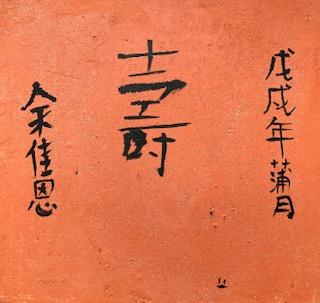 戊戌年蒲月
壽
余佳恩